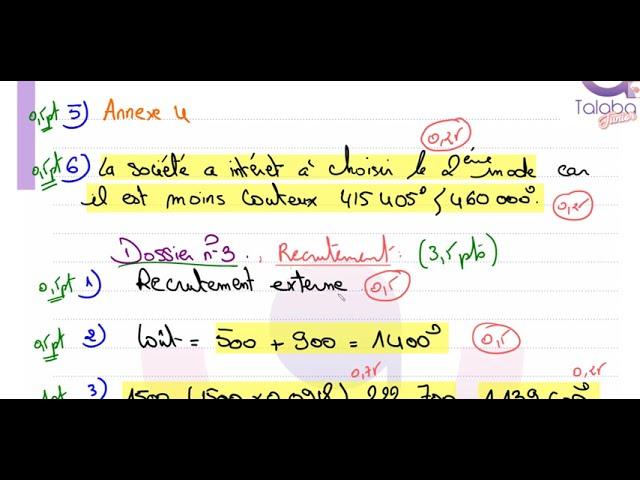 Talaba
Junior
0,5pt 5) Annexe 4
0,25
0,5pt 6) La société a intérêt à choisir le 2ème mode car
il est moins couteux 415 405D < 460 000D. 0,25
Dossier n°3 : Recrutement : (3,5 pts)
0,5pt 1) Recrutement externe 0,5
0,5pt 2) Coût = 500 + 900 = 1400D 0,5
0,75 0,25
1pt 3) 1500 - (1500 x 0,0918)